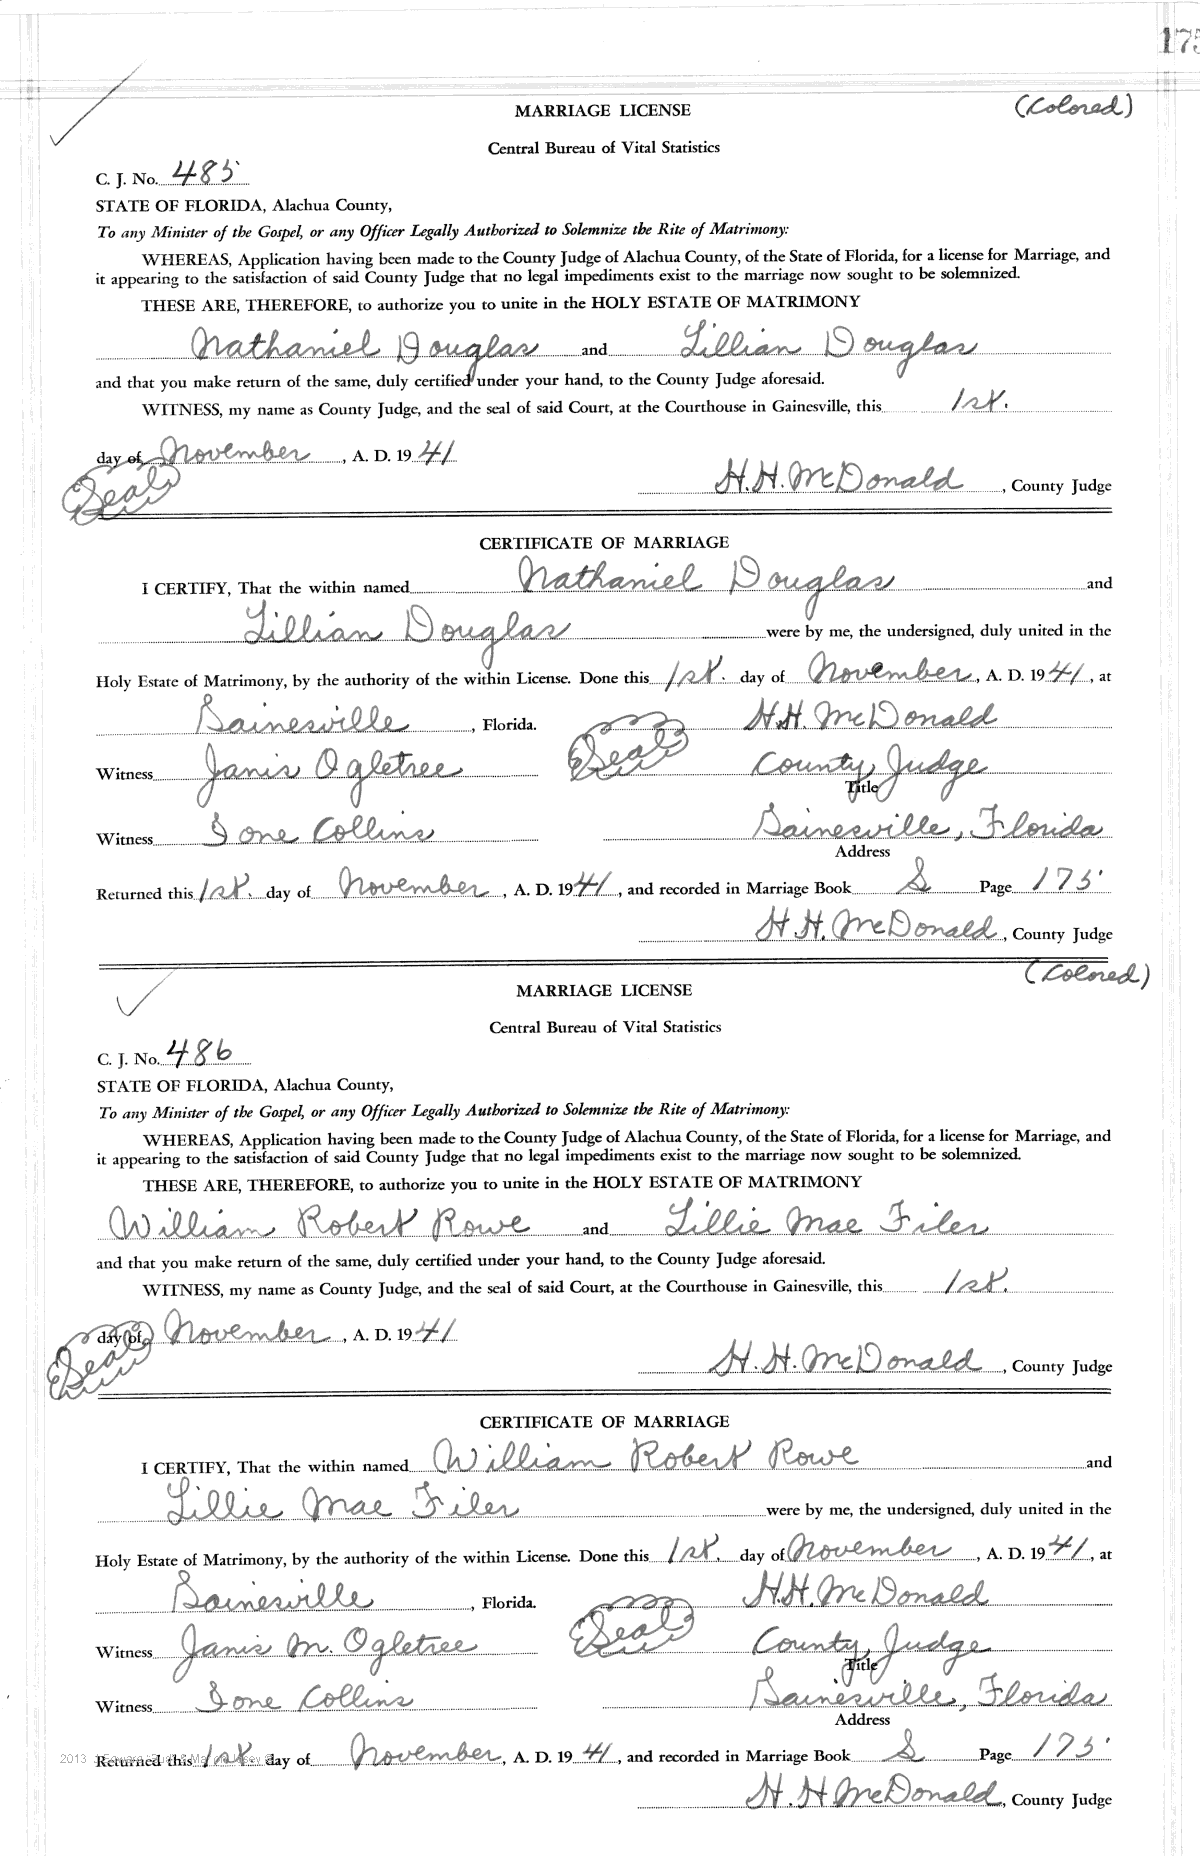 175
(Colored)
MARRIAGE LICENSE
Central Bureau of Vital Statistics
C. J. No. 485
STATE OF FLORIDA, Alachua County,
To any Minister of the Gospel, or any Officer Legally Authorized to Solemnize the Rite of Matrimony:
WHEREAS, Application having been made to the County Judge of Alachua County, of the State of Florida, for a license for Marriage, and
it appearing to the satisfaction of said County Judge that no legal impediments exist to the marriage now sought to be solemnized.
THESE ARE, THEREFORE, to authorize you to unite in the HOLY ESTATE OF MATRIMONY
Nathaniel Douglas and Lillian Douglas
and that you make return of the same, duly certified under your hand, to the County Judge aforesaid.
WITNESS, my name as County Judge, and the seal of said Court, at the Courthouse in Gainesville, this 1st.
day of November, A. D. 19 41
Seal
H. H. McDonald, County Judge
CERTIFICATE OF MARRIAGE
I CERTIFY, That the within named Nathaniel Douglas and
Lillian Douglas were by me, the undersigned, duly united in the
Holy Estate of Matrimony, by the authority of the within License. Done this 1st. day of November, A. D. 19 41, at
Gainesville, Florida. Seal H. H. McDonald
Witness Janis Ogletree County Judge
Title
Witness Ione Collins Gainesville, Florida
Address
Returned this 1st. day of November, A. D. 19 41, and recorded in Marriage Book S Page 175
H. H. McDonald, County Judge
(Colored)
MARRIAGE LICENSE
Central Bureau of Vital Statistics
C. J. No. 486
STATE OF FLORIDA, Alachua County,
To any Minister of the Gospel, or any Officer Legally Authorized to Solemnize the Rite of Matrimony:
WHEREAS, Application having been made to the County Judge of Alachua County, of the State of Florida, for a license for Marriage, and
it appearing to the satisfaction of said County Judge that no legal impediments exist to the marriage now sought to be solemnized.
THESE ARE, THEREFORE, to authorize you to unite in the HOLY ESTATE OF MATRIMONY
William Robert Rowe and Lillie Mae Filer
and that you make return of the same, duly certified under your hand, to the County Judge aforesaid.
WITNESS, my name as County Judge, and the seal of said Court, at the Courthouse in Gainesville, this 1st.
day of November, A. D. 19 41
Seal
H. H. McDonald, County Judge
CERTIFICATE OF MARRIAGE
I CERTIFY, That the within named William Robert Rowe and
Lillie Mae Filer were by me, the undersigned, duly united in the
Holy Estate of Matrimony, by the authority of the within License. Done this 1st. day of November, A. D. 19 41, at
Gainesville, Florida. Seal H. H. McDonald
Witness Janis M. Ogletree County Judge
Title
Witness Ione Collins Gainesville, Florida
Address
2013
Returned this 1st. day of November, A. D. 19 41, and recorded in Marriage Book S Page 175
H. H McDonald, County Judge